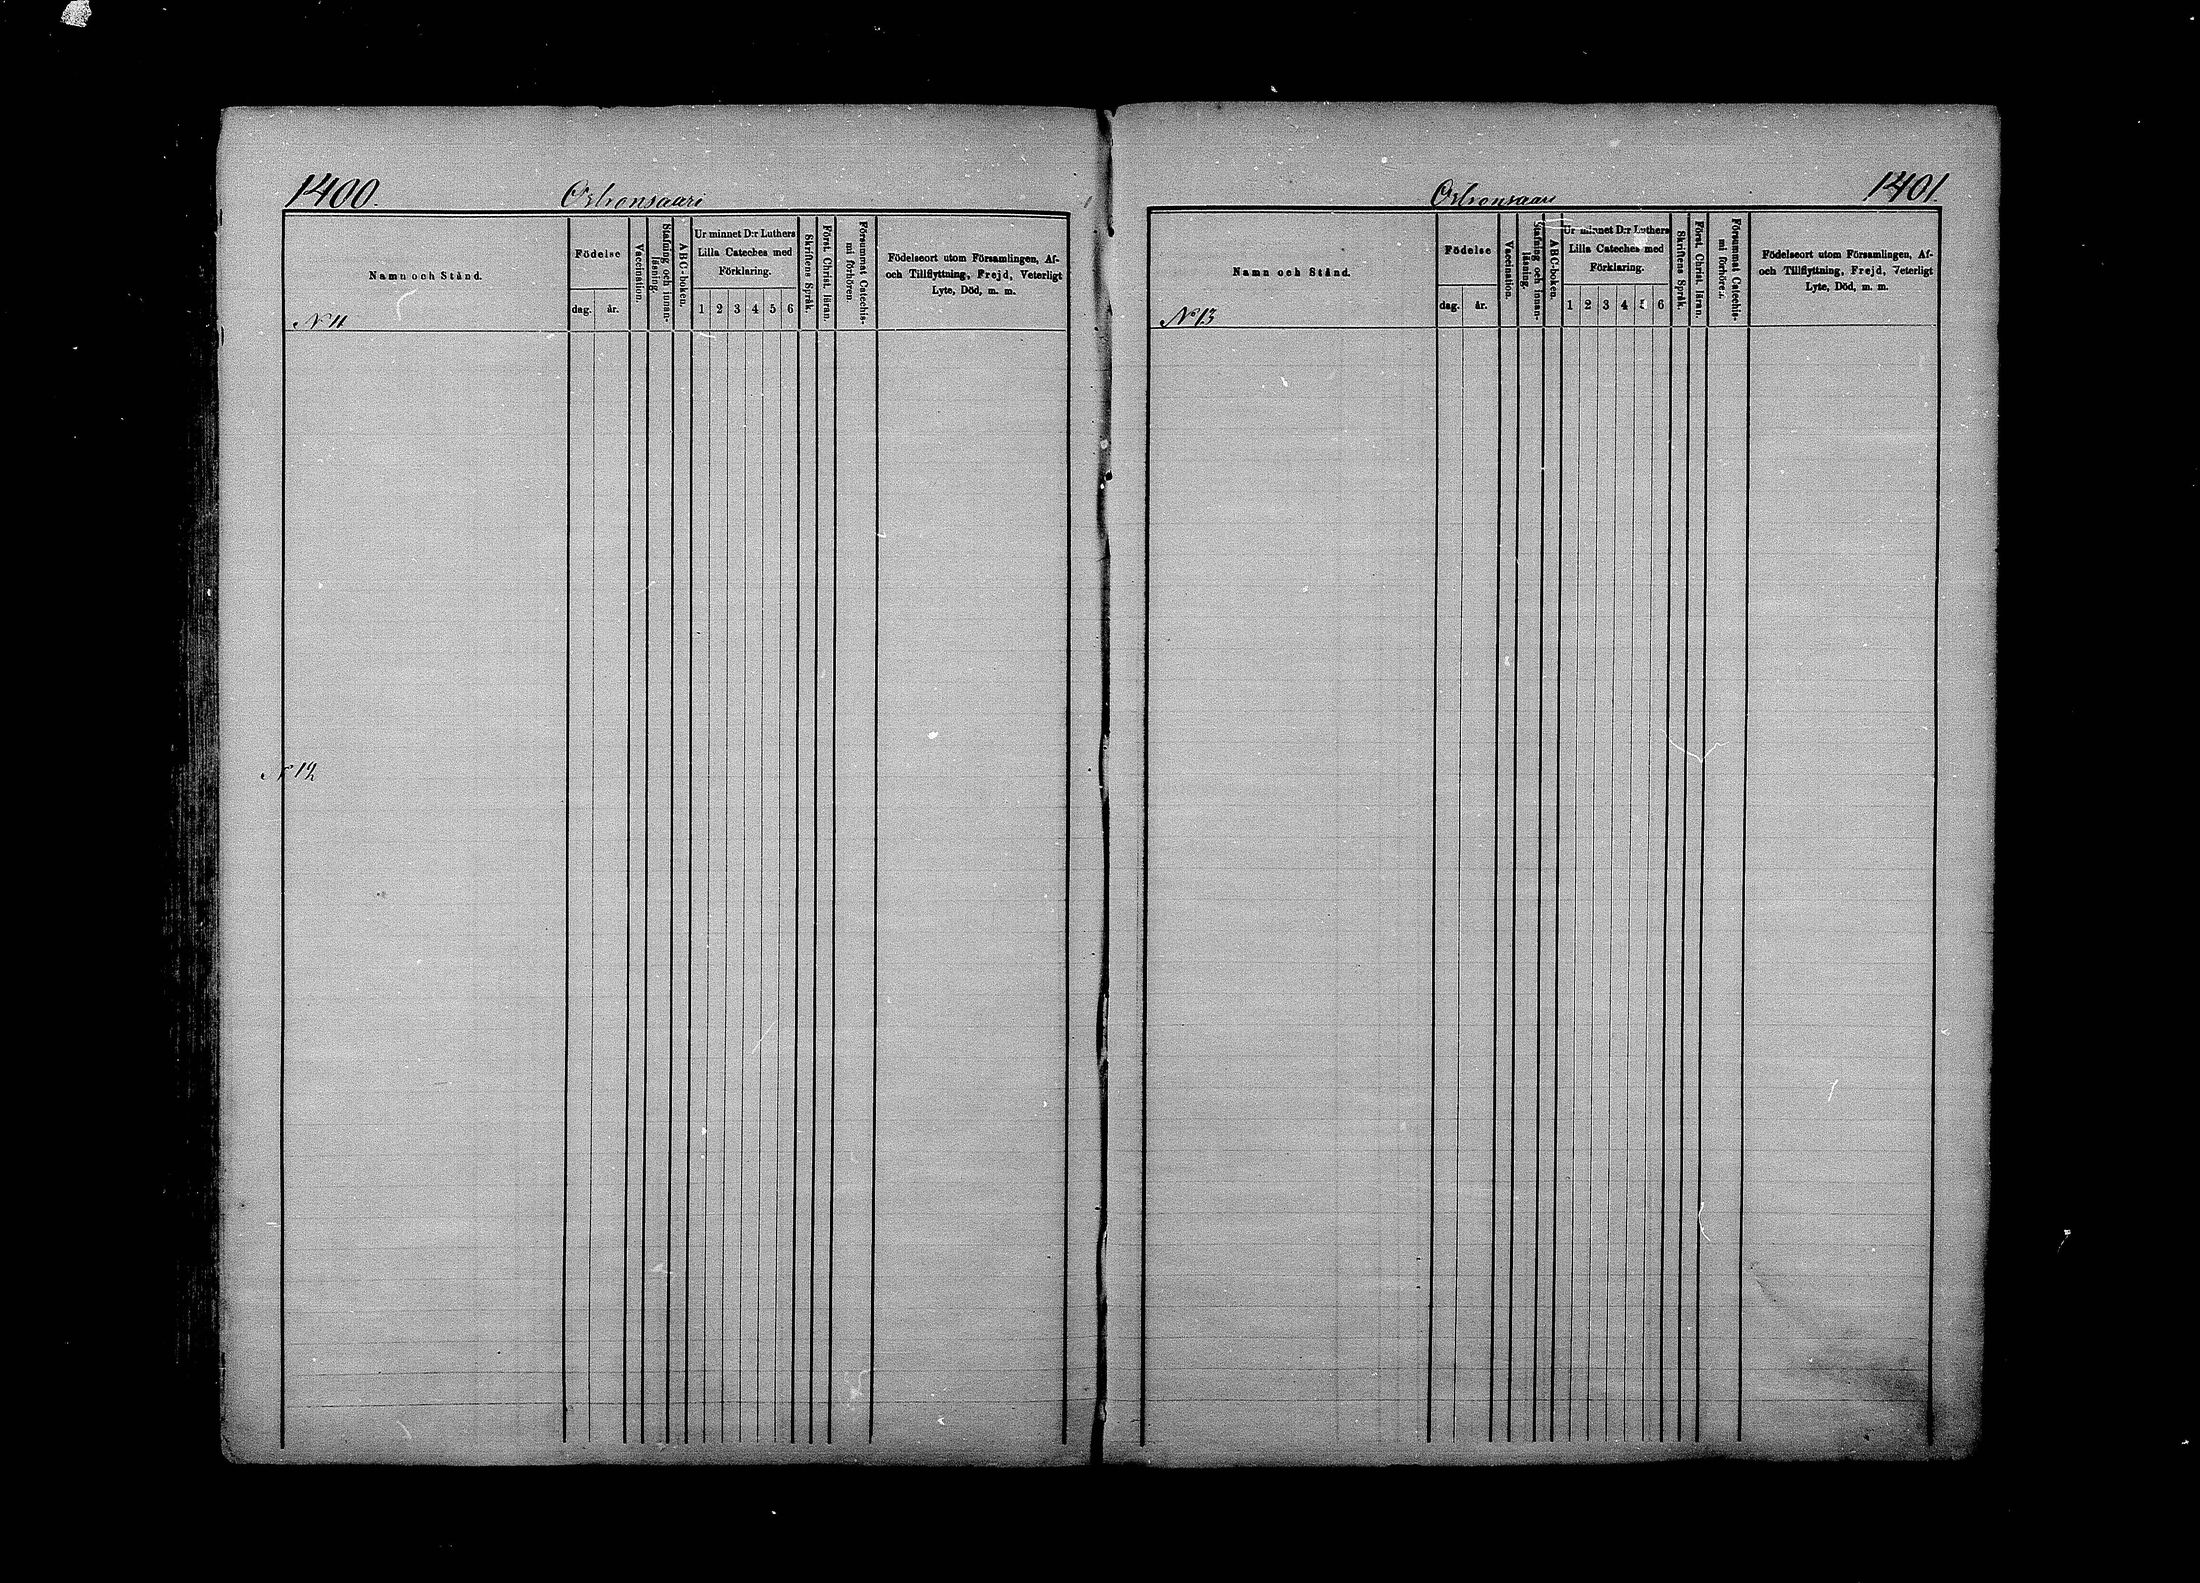 1400.
Ostronsaari
Namn och Stånd.
Födelse
dag. år.
Vaccination.
Stafning och innan-
läsning.
ABC-boken.
Ur minnet D:r Luthers
Lilla Cateches med
Förklaring.
1 2 3 4 5 6
Skriftens Språk.
Först. Christ. läran.
Försummat Catechis-
mi förhören
Födelseort utom Församlingen, Af-
och Tillflyttning, Frejd, Veterligt
Lyte, Död, m. m.
N 11
N 12
1401.
Ostronsaari
Namn och Stånd.
Födelse
dag. år.
Vaccination.
Stafning och innan-
läsning.
ABC-boken.
Ur minnet D:r Luthers
Lilla Cateches med
Förklaring.
1 2 3 4 5 6
Skriftens Språk.
Först. Christ. läran.
Försummat Catechis-
mi förhören
Födelseort utom Församlingen, Af-
och Tillflyttning, Frejd, Veterligt
Lyte, Död, m. m.
N 13